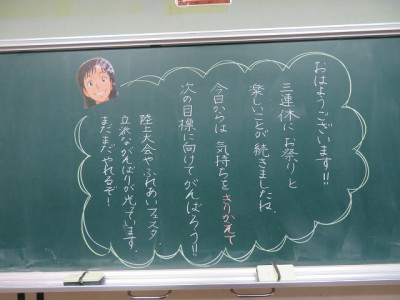 おはようございます!!
三連休に お祭りと
楽しいことが 続きましたね。
今日からは 気持ちを きりかえて
次の目標に向けてがんばろう!!
陸上大会やふれあいフェスタ、
立派ながんばりが光っています。
まだまだ やれるぞ!